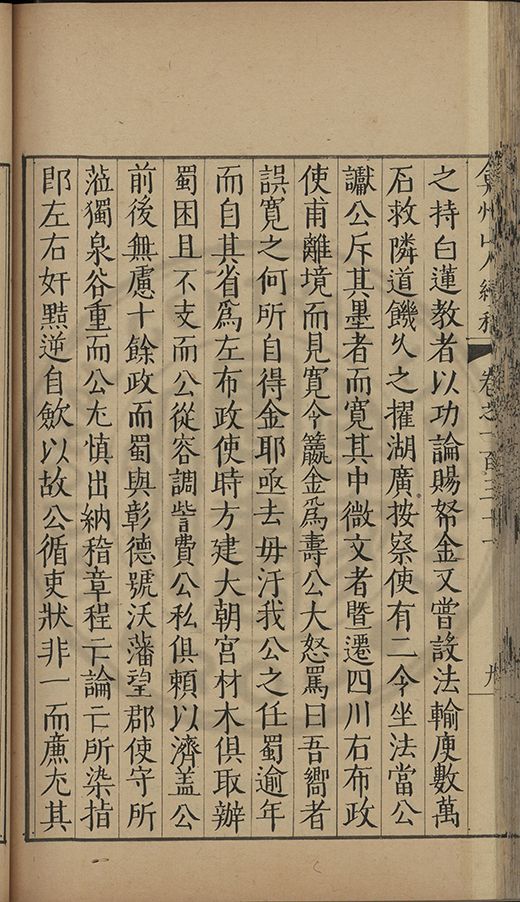 弇州山人續稿 卷之一百三十一 九
之持白蓮教者以功論賜帑金又嘗設法輸庾數萬
石救隣道饑久之擢湖廣按察使有二令坐法當公
讞公斥其墨者而寬其中微文者暨遷四川右布政
使甫離境而見寬令籝金爲壽公大怒罵曰吾嚮者
誤寬之何所自得金耶亟去毋汙我公之任蜀逾年
而自其省爲左布政使時方建大朝宮材木俱取辦
蜀困且不支而公從容調訾費公私俱賴以濟盖公
前後無慮十餘政而蜀與彰德號沃藩望郡使守所
蒞獨泉谷重而公尢慎出納稽章程亡論亡所染指
卽左右奸黠逆自歛以故公循吏狀非一而廉尢其